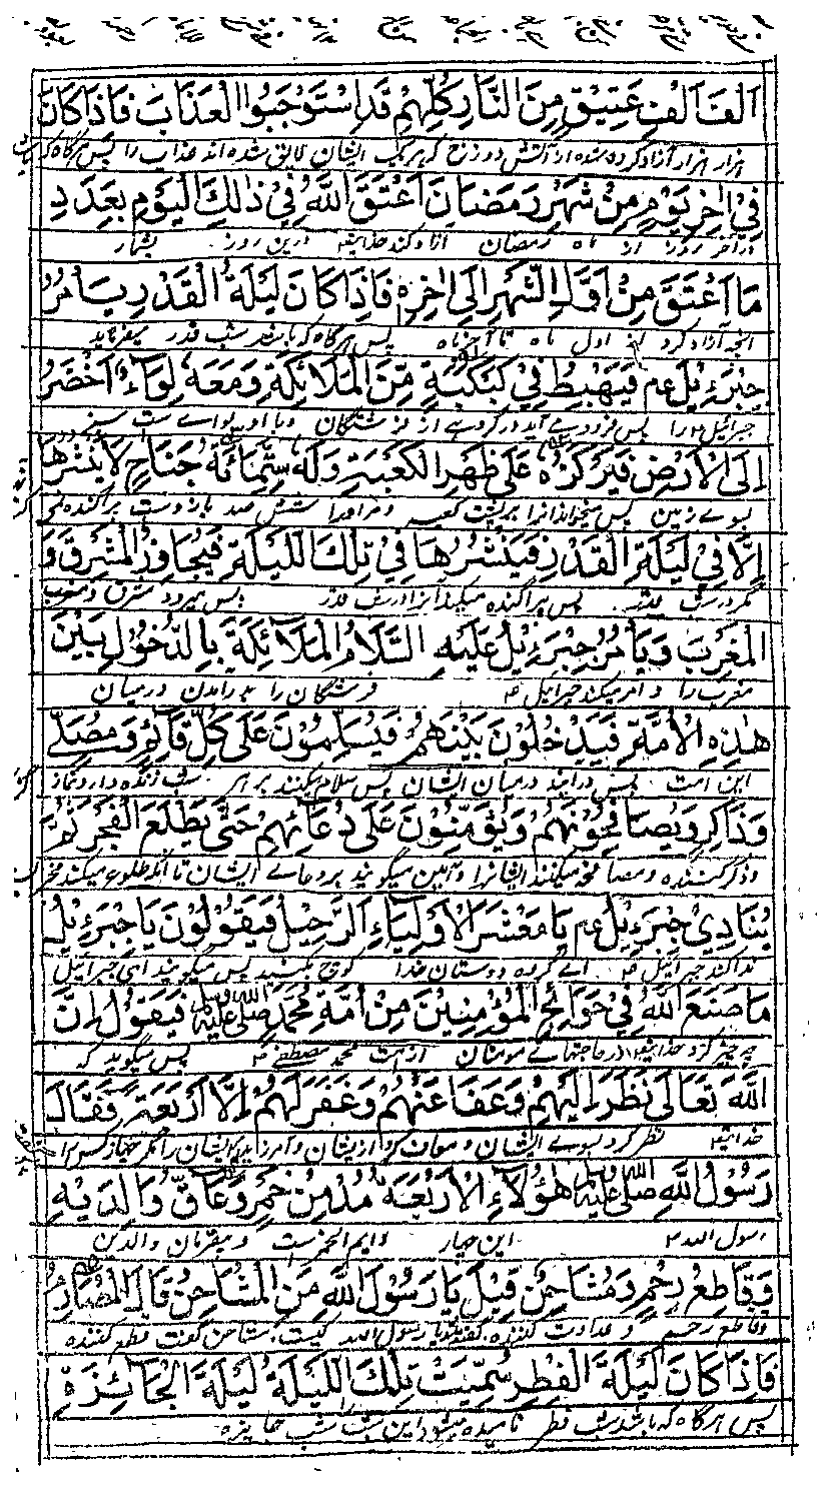 اَلْفَ اَلْفِ عَتِيْقٍ مِنَ النَّارِ كُلِّهِمْ قَدِ اسْتَوْجَبُوا الْعَذَابَ فَاِذَا كَانَ
هزار هزار آزاد کرده شده از آتش دوزخ که هر یک ایشان لائق شده اند عذاب را پس هرگاه که
فِيْ اٰخِرِ يَوْمٍ مِنْ شَهْرِ رَمَضَانَ اَعْتَقَ اللّٰهُ فِيْ ذٰلِكَ الْيَوْمِ بِعَدَدِ
در آخر روز از ماه رمضان آزاد کند خدایتعالی درین روز بشمار
مَا اَعْتَقَ مِنْ اَوَّلِ الشَّهْرِ اِلٰى اٰخِرِهٖ فَاِذَا كَانَ لَيْلَةُ الْقَدْرِ يَأْمُرُ
آنچه آزاد کرد از اول ماه تا آخر ماه پس هرگاه که باشد شب قدر میفرماید
جِبْرَءِيْلَ عم فَيَهْبِطُ فِيْ كَبْكَبَةٍ مِّنَ الْمَلَائِكَةِ وَمَعَهٗ لِوَاءٌ اَخْضَرُ
جبرائیل را پس فرود می آید در گروهے از فرشتگان و با او لواے ست سبز
اِلَى الْاَرْضِ فَيَرْكُزُهٗ عَلٰى ظَهْرِ الْكَعْبَةِ وَلَهٗ سِتُّمِائَةِ جَنَاحٍ لَا يَنْشُرُهَا
بسوے زمین پس میخواند آنرا بر پشت کعبه و مر او را شش صد بازوست پراگنده
اِلَّا فِيْ لَيْلَةِ الْقَدْرِ فَيَنْشُرُهَا فِيْ تِلْكَ اللَّيْلَةِ فَيُجَاوِزُ الْمَشْرِقَ وَ
مگر در شب قدر پس پراگنده میکند آنرا در شب قدر پس میرود مشرق و مغرب
الْمَغْرِبَ وَيَأْمُرُ جِبْرَءِيْلُ عَلَيْهِ السَّلَامُ الْمَلَائِكَةَ بِالدُّخُوْلِ بَيْنَ
مغرب را و امر میکند جبرائیل فرشتگان را به رامدن درمیان
هٰذِهِ الْاُمَّةِ فَيَدْخُلُوْنَ بَيْنَهُمْ فَيُسَلِّمُوْنَ عَلٰى كُلِّ قَائِمٍ وَمُصَلٍّ
این امت پس درایند درمیان ایشان پس سلام میکنند بر هر شب زنده دار و نماز
وَذَاكِرٍ وَيُصَافِحُوْنَهُمْ وَيُؤَمِّنُوْنَ عَلٰى دُعَائِهِمْ حَتّٰى يَطْلَعَ الْفَجْرُ ثُمَّ
و ذکر کننده و مصافحه میکنند ایشانرا و آمین میگویند بر دعاے ایشان تا آنکه طلوع میکند فجر
يُنَادِيْ جِبْرَءِيْلُ عم يَا مَعْشَرَ الْاَوْلِيَاءِ الرَّحِيْلُ فَيَقُوْلُوْنَ يَا جِبْرَءِيْلُ
ندا کند جبرائیل اے گروه دوستان خدا کوچ بکنید پس میگویند ای جبرائیل
مَا صَنَعَ اللّٰهُ فِيْ حَوَائِجِ الْمُؤْمِنِيْنَ مِنْ اُمَّةِ مُحَمَّدٍ صَلَّى اللّٰهُ عَلَيْهِ وَسَلَّمَ فَيَقُوْلُ اِنَّ
چه چیز کرد خدایتعالی در حاجتهاے مومنان از امت محمد مصطفے پس میگوید که
اللّٰهَ تَعَالٰى نَظَرَ اِلَيْهِمْ وَعَفَا عَنْهُمْ وَغَفَرَ لَهُمْ اِلَّا اَرْبَعَةً فَقَالَ
خدایتعالی نظر کرد بسوے ایشان و معاف کرد از ایشان و آمرزید ایشان را مگر چهار کس
رَسُوْلُ اللّٰهِ صَلَّى اللّٰهُ عَلَيْهِ وَسَلَّمَ هٰؤُلَاءِ الْاَرْبَعَةُ مُدْمِنُ خَمْرٍ وَعَاقٌّ وَالِدَيْهِ
رسول الله این چهار دایم الخمرست و بیفرمان والدین
وَقَاطِعُ رِحْمٍ وَمُشَاحِنٌ قِيْلَ يَا رَسُوْلَ اللّٰهِ مَنِ الْمُشَاحِنُ قَالَ الْمُصَارِمُ
و قاطع رحم و عداوت کننده گفته شد یا رسول الله کیست مشاحن گفت قطع کننده
فَاِذَا كَانَ لَيْلَةُ الْفِطْرِ سُمِّيَتْ تِلْكَ اللَّيْلَةُ لَيْلَةَ الْجَائِزَةِ
پس هرگاه که باشد شب فطر نامیده میشود این شب شب جایزه